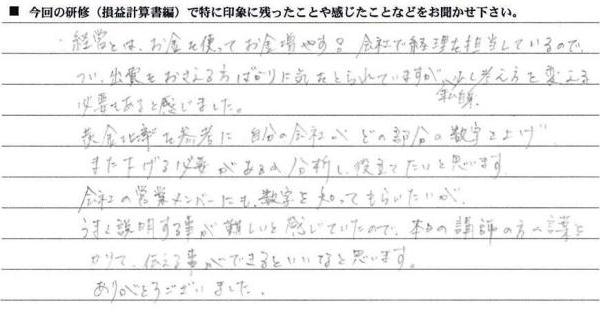 ■ 今回の研修（損益計算書編）で特に印象に残ったことや感じたことなどをお聞かせ下さい。
・経営とは、お金を使ってお金増やす! 会社で経理を担当しているので、
つい、出費をおさえる方ばかりに気をとられていますが、少し考え方を変える
私自身
必要もあると感じました。
を参考に自分の会社がどの部分の数字を上げ
また下げる必要があるか分析し、役立てたいと思います。
会社の営業メンバーにも、数字を知ってもらいたいが、
うまく説明する事が難しいと感じていたので、本日の講師の方の言葉を
かりて、伝える事ができるといいなと思います。
ありがとうございました。